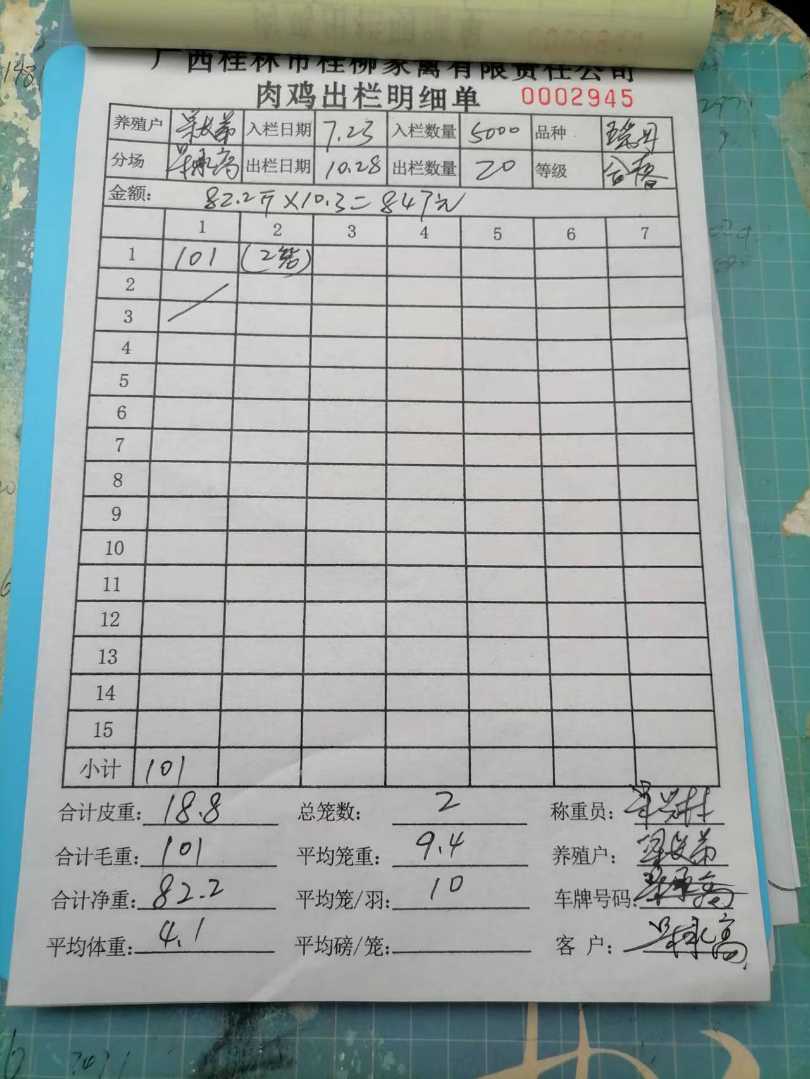 广西桂林市桂柳家禽有限责任公司
肉鸡出栏明细单 0002945
养殖户 入栏日期 7.23 入栏数量 5000 品种
分场 出栏日期 10.28 出栏数量 20 等级 合格
金额: 82.2斤×10.3=847元
1 2 3 4 5 6 7
1 101 (2笼)
2
3
4
5
6
7
8
9
10
11
12
13
14
15
小计 101
合计皮重: 18.8 总笼数: 2 称重员:
合计毛重: 101 平均笼重: 9.4 养殖户:
合计净重: 82.2 平均笼/羽: 10 车牌号码:
平均体重: 4.1 平均磅/笼: 客 户: